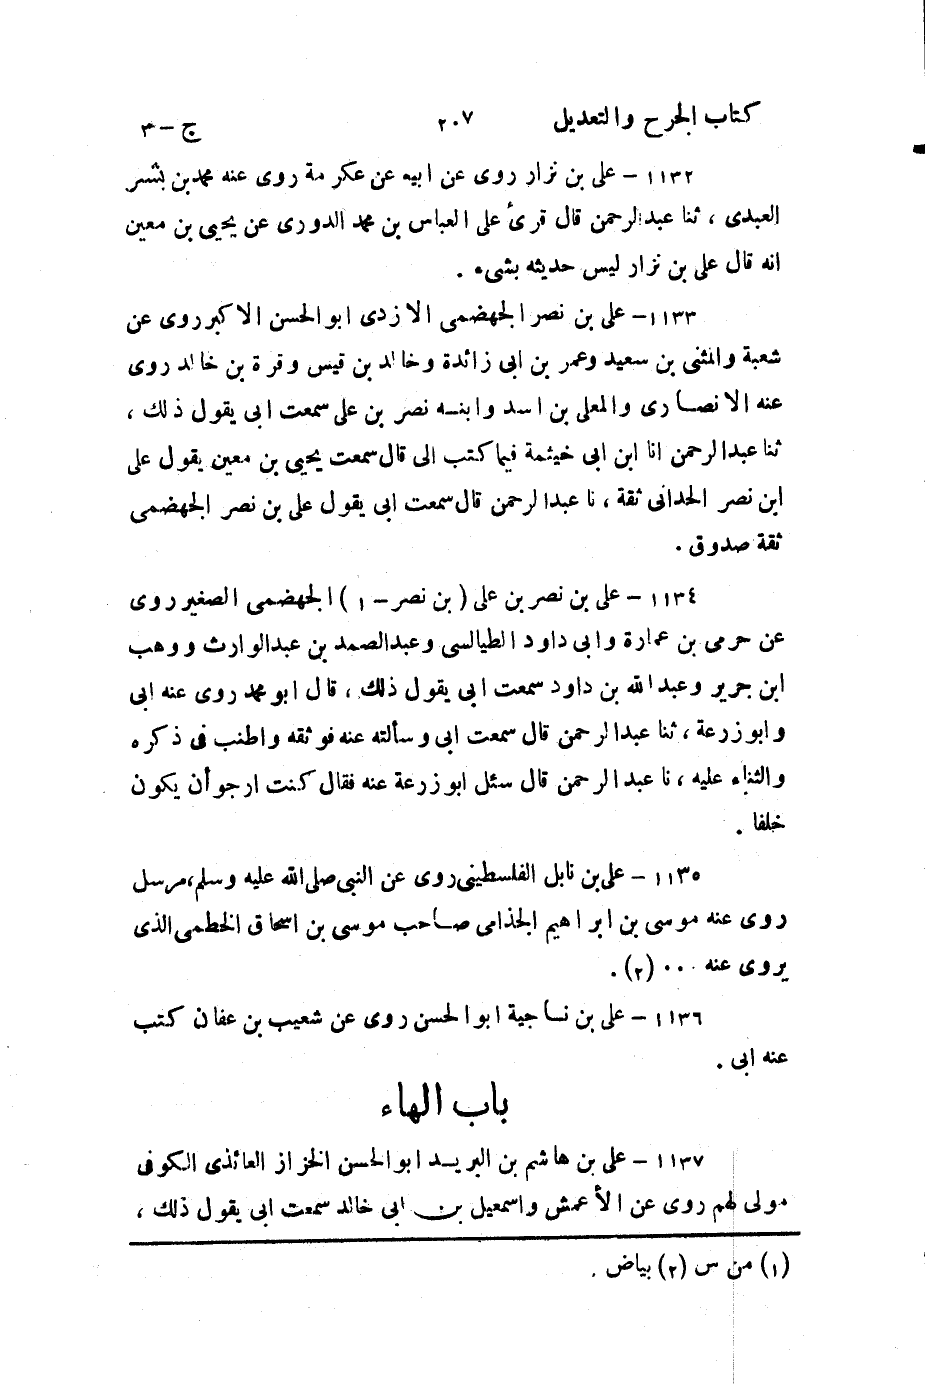 كتاب الجرح والتعديل ٢٠٧ ج - ٣
١١٣٢ - على بن نزار روى عن ابيه عن عكرمة روى عنه محمد بن بشر
العبدى ، ثنا عبدالرحمن قال قرئ على العباس بن محمد الدورى عن يحيى بن معين
انه قال على بن نزار ليس حديثه بشىء .
١١٣٣ - على بن نصر الجهضمى الازدى ابو الحسن الاكبر روى عن
شعبة والمثنى بن سعيد وعمر بن ابى زائدة وخالد بن قيس وقرة بن خالد روى
عنه الانصارى والمعلى بن اسد وابنه نصر بن على سمعت ابى يقول ذلك ،
ثنا عبدالرحمن انا ابن ابى خيثمة فيما كتب الى قال سمعت يحيى بن معين يقول على
ابن نصر الحدانى ثقة ، نا عبدالرحمن قال سمعت ابى يقول على بن نصر الجهضمى
ثقة صدوق .
١١٣٤ - على بن نصر بن على ( بن نصر - ١ ) الجهضمى الصغير روى
عن حرمى بن عمارة وابى داود الطيالسى وعبدالصمد بن عبدالوارث ووهب
ابن جرير وعبدالله بن داود سمعت ابى يقول ذلك ، قال ابو محمد روى عنه ابى
وابو زرعة ، ثنا عبدالرحمن قال سمعت ابى وسألته عنه فوثقه واطنب فى ذكره
والثناء عليه ، نا عبدالرحمن قال سئل ابو زرعة عنه فقال كنت ارجو أن يكون
خلفا .
١١٣٥ - على بن نابل الفلسطينى روى عن النبى صلى الله عليه وسلم ، مرسل
روى عنه موسى بن ابراهيم الجذامى صاحب موسى بن اسحاق الخطمى الذى
يروى عنه ... (٢) .
١١٣٦ - على بن ناجية ابو الحسن روى عن شعيب بن عفان كتب
عنه ابى .
باب الهاء
١١٣٧ - على بن هاشم بن البريد ابو الحسن الخزاز العائذى الكوفى
مولى لهم روى عن الأعمش واسمعيل بن ابى خالد سمعت ابى يقول ذلك ،
(١) من س (٢) بياض .